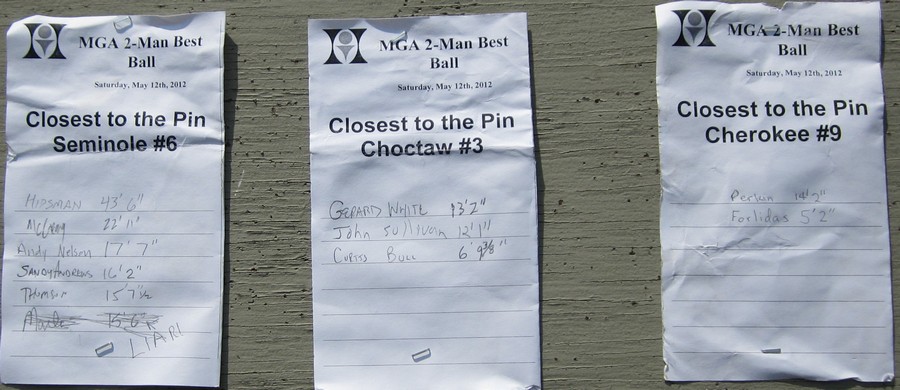 MGA 2-Man Best
Ball
Saturday, May 12th, 2012
Closest to the Pin
Seminole #6
HIPSMAN 43' 6"
McCroy 22' 11"
Andy Nelson 17' 7"
SANDY ANDREWS 16' 2"
THOMSON 15' 7 1/2
15' 6"
LIAR!
MGA 2-Man Best
Ball
Saturday, May 12th, 2012
Closest to the Pin
Choctaw #3
GERARD WHITE 13' 2"
John Sullivan 12' 1"
CURTIS BULL 6' 9 3/8"
MGA 2-Man Best
Ball
Saturday, May 12th, 2012
Closest to the Pin
Cherokee #9
Perlun 14' 2"
Forlidas 5' 2"